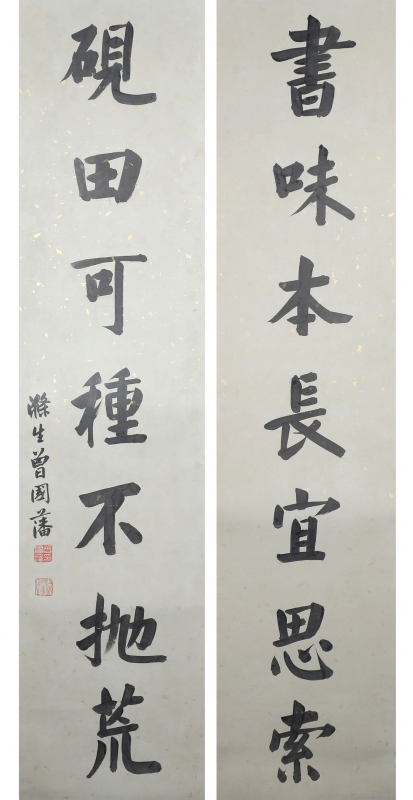 書味本長宜思索
硯田可種不拋荒
滌生曾國藩